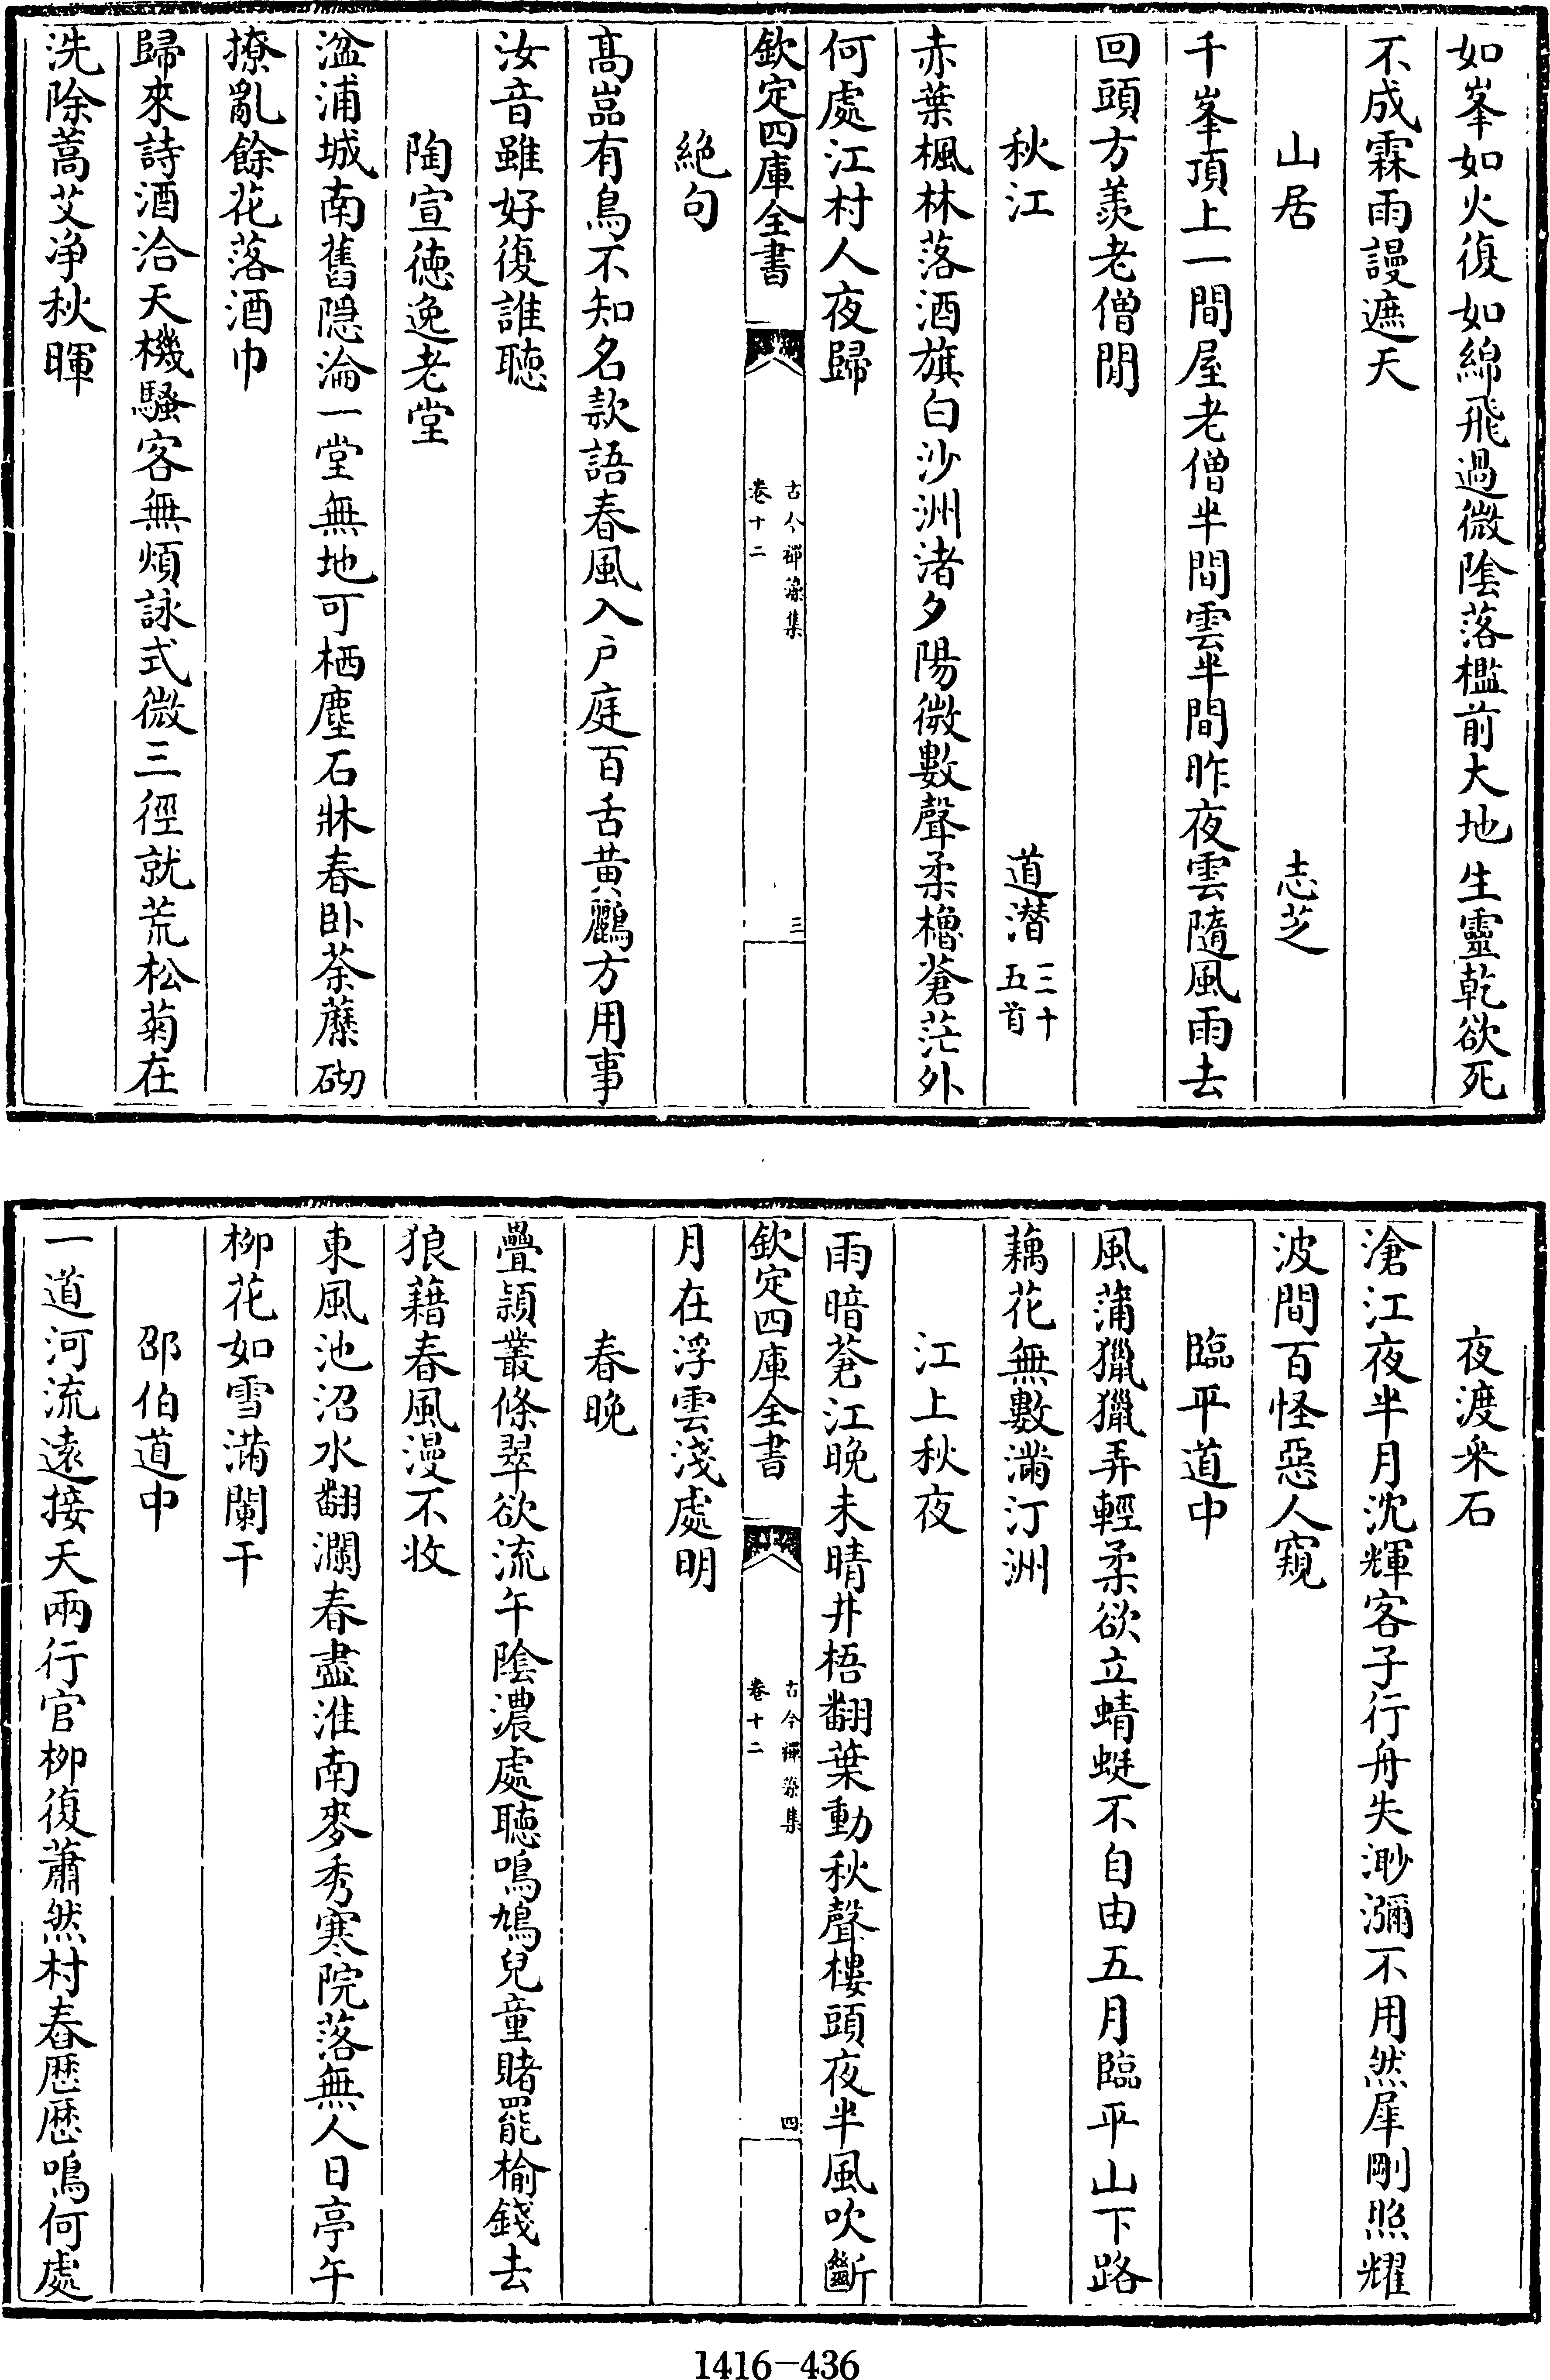 如峯如火復如綿飛過微隂落檻前大地生靈乾欲死
不成霖雨謾遮天
山居　志芝
千峯頂上一間屋老僧半間雲半間昨夜雲隨風雨去
回頭方羨老僧閒
秋江　道潛三十五首
赤葉楓林落酒旗白沙洲渚夕陽微數聲柔櫓蒼茫外
何處江村人夜歸
欽定四庫全書　古今禪藻集卷十二　三
絶句
髙嵓有鳥不知名款語春風入户庭百舌黄鸝方用事
汝音雖好復誰聴
陶宣徳逸老堂
湓浦城南舊隠淪一堂無地可栖塵石牀春卧荼蘼砌
撩亂餘花落酒巾
歸來詩酒洽天機騷客無煩詠式微三徑就荒松菊在
洗除蒿艾净秋暉
夜渡采石
滄江夜半月沈輝客子行舟失渺瀰不用然犀剛照耀
波間百怪惡人窺
臨平道中
風蒲獵獵弄輕柔欲立蜻蜓不自由五月臨平山下路
藕花無數滿汀洲
江上秋夜
雨暗蒼江晚未晴井梧翻葉動秋聲樓頭夜半風吹斷
欽定四庫全書　古今禪藻集卷十二　四
月在浮雲淺處明
春晚
疊穎叢條翠欲流午隂濃處聴鳴鳩兒童賭罷榆錢去
狼藉春風漫不收
東風池沼水翻瀾春盡淮南麥秀寒院落無人日亭午
栁花如雪滿闌干
邵伯道中
一道河流遠接天兩行官栁復蕭然村舂歴歴鳴何處
1416—436